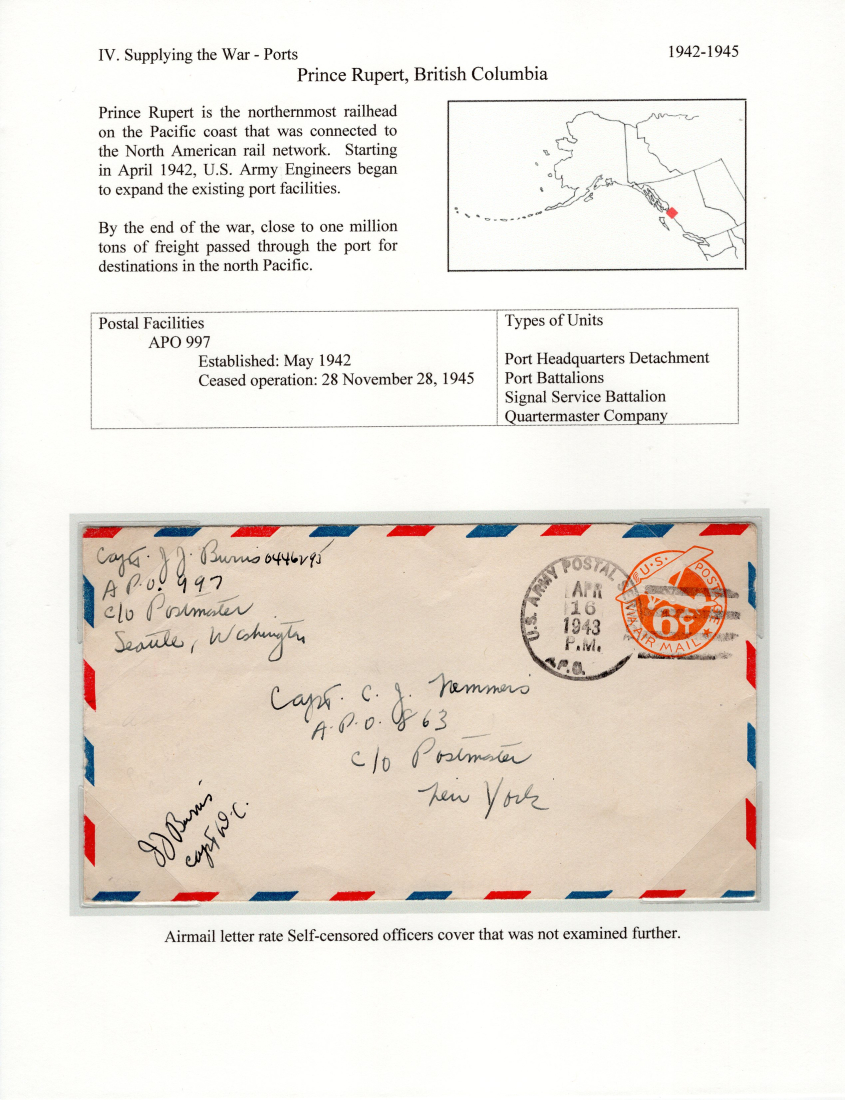 IV. Supplying the War - Ports
1942-1945
Prince Rupert, British Columbia
Prince Rupert is the northernmost railhead
on the Pacific coast that was connected to
the North American rail network. Starting
in April 1942, U.S. Army Engineers began
to expand the existing port facilities.
By the end of the war, close to one million
tons of freight passed through the port for
destinations in the north Pacific.
Postal Facilities
APO 997
Established: May 1942
Ceased operation: 28 November 28, 1945
Types of Units
Port Headquarters Detachment
Port Battalions
Signal Service Battalion
Quartermaster Company
Capt. J. J. Burris
A P.O. 997
c/o Postmaster
Seattle, Washington
U.S. ARMY POSTAL
APR
16
1943
P.M.
A.P.O.
U.S. POSTAGE
6¢
VIA AIR MAIL
Capt. C. J.
A.P.O. 863
c/o Postmaster
New York
JJ Burris
Capt D.C.
Airmail letter rate Self-censored officers cover that was not examined further.